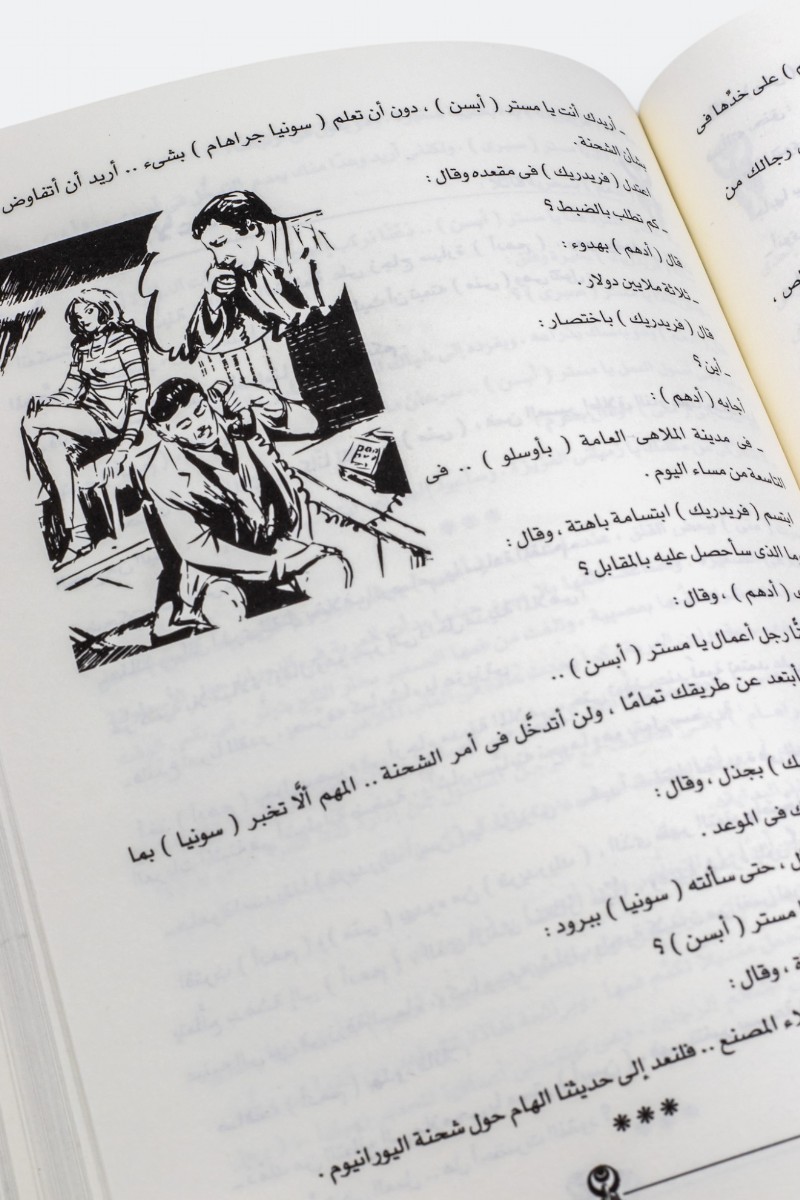 ـ أريدك أنت يا مستر ( أبسن ) ، دون أن تعلم ( سونيا جراهام ) بشىء .. أريد أن أتفاوض
بشأن الشحنة .
اعتدل ( فريدريك ) فى مقعده وقال :
ـ كم تطلب بالضبط ؟
قال ( أدهم ) بهدوء :
ـ ثلاثة ملايين دولار .
قال ( فريدريك ) باختصار :
ـ أين ؟
أجابه ( أدهم ) :
ـ فى مدينة الملاهى العامة ( بأوسلو ) .. فى
التاسعة من مساء اليوم .
ابتسم ( فريدريك ) ابتسامة باهتة ، وقال :
الذى سأحصل عليه بالمقابل ؟
( أدهم ) ، وقال :
رجل أعمال يا مستر ( أبسن ) ..
أبتعد عن طريقك تمامًا ، ولن أتدخَّل فى أمر الشحنة .. المهم ألَّا تخبر ( سونيا ) بما
) بجذل ، وقال :
فى الموعد .
، حتى سألته ( سونيا ) ببرود :
مستر ( أبسن ) ؟
، وقال :
المصنع .. فلنعد إلى حديثنا الهام حول شحنة اليورانيوم .
***
) على خدِّها فى
رجالك من